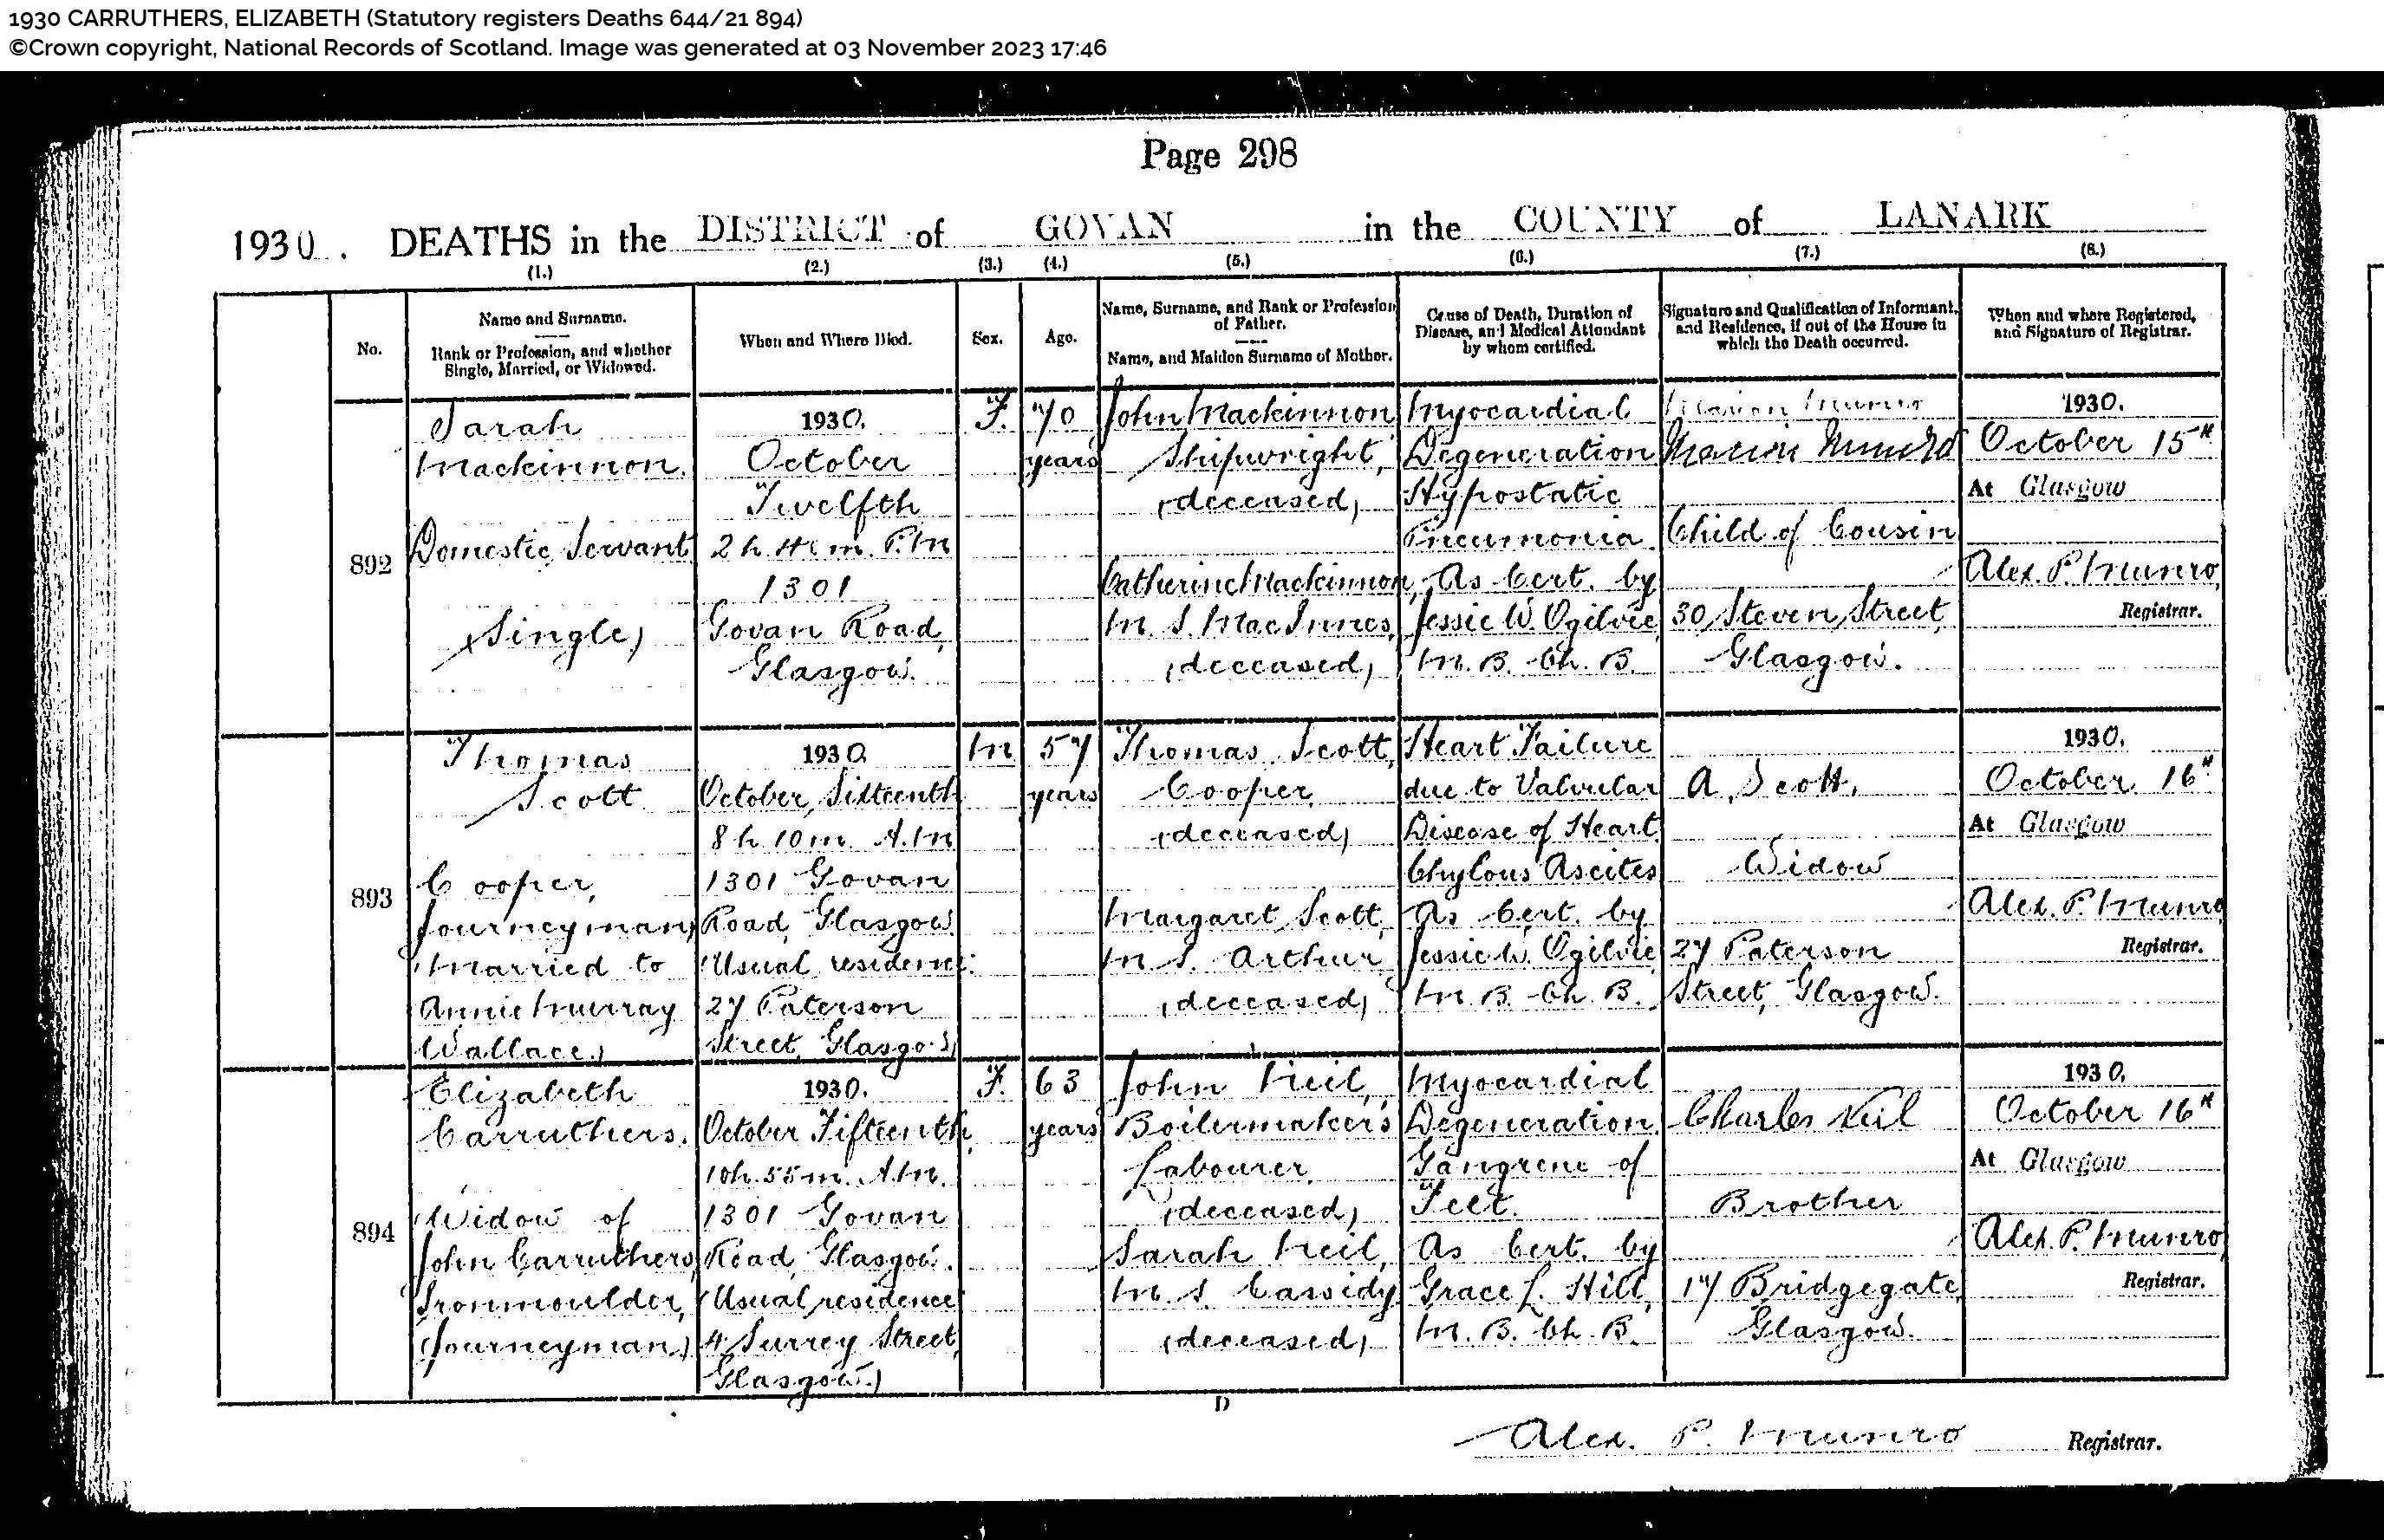 1930 CARRUTHERS, ELIZABETH (Statutory registers Deaths 644/21 894)
©Crown copyright, National Records of Scotland. Image was generated at 03 November 2023 17:46
Page 298
1930. DEATHS in the DISTRICT of GOVAN in the COUNTY of LANARK
(1.) (2.) (3.) (4.) (5.) (6.) (7.) (8.)
No.
Name and Surname.
Rank or Profession, and whether
Single, Married, or Widowed.
When and Where Died.
Sex.
Age.
Name, Surname, and Rank or Profession
of Father.
Name, and Maiden Surname of Mother.
Cause of Death, Duration of
Disease, and Medical Attendant
by whom certified.
Signature and Qualification of Informant,
and Residence, if out of the House in
which the Death occurred.
When and where Registered,
and Signature of Registrar.
892
Sarah
Mackinnon.
Domestic Servant
(Single)
1930.
October
Twelfth
2 h. m. P.M
1301
Govan Road,
Glasgow.
F.
70
years
John Mackinnon
Shipwright,
(deceased)
Catherine Mackinnon,
M. S. MacInnes,
(deceased)
Myocardial
Degeneration
Hypostatic
Pneumonia.
As Cert. by
Jessie W. Ogilvie
M. B. Ch. B.
Marion Munro
Marion Munro
Child of Cousin
30, Steven Street,
Glasgow.
1930.
October 15th
At Glasgow
Alex. P. Munro,
Registrar.
893
Thomas
Scott
Cooper,
Journeyman,
(Married to
Annie Murray
Wallace.)
1930.
October, Sixteenth
8 h 10 m. A.M
1301 Govan
Road, Glasgow.
(Usual residence
27 Paterson
Street, Glasgow)
M
57
years
Thomas Scott,
Cooper,
(deceased)
Margaret Scott,
M. S. Arthur
(deceased)
Heart Failure
due to Valvular
Disease of Heart.
Chylous Ascites
As Cert. by
Jessie W. Ogilvie
M. B. Ch. B.
A. Scott,
Widow
27 Paterson
Street, Glasgow.
1930.
October 16th
At Glasgow
Alex. P. Munro
Registrar.
894
Elizabeth
Carruthers.
(Widow of
John Carruthers,
Ironmoulder,
(Journeyman)
1930.
October Fifteenth,
10h. 55m. A.M.
1301 Govan
Road, Glasgow.
(Usual residence
4 Surrey Street,
Glasgow.)
F.
63
years
John Neil,
Boilermaker's
Labourer.
(deceased)
Sarah Neil,
M. S. Cassidy
(deceased)
Myocardial
Degeneration.
Gangrene of
Feet.
As Cert. by
Grace L. Hill,
M. B. Ch. B.
Charles Neil
Brother
17 Bridgegate,
Glasgow.
1930.
October 16th
At Glasgow
Alex. P. Munro,
Registrar.
D
Alex. P. Munro Registrar.